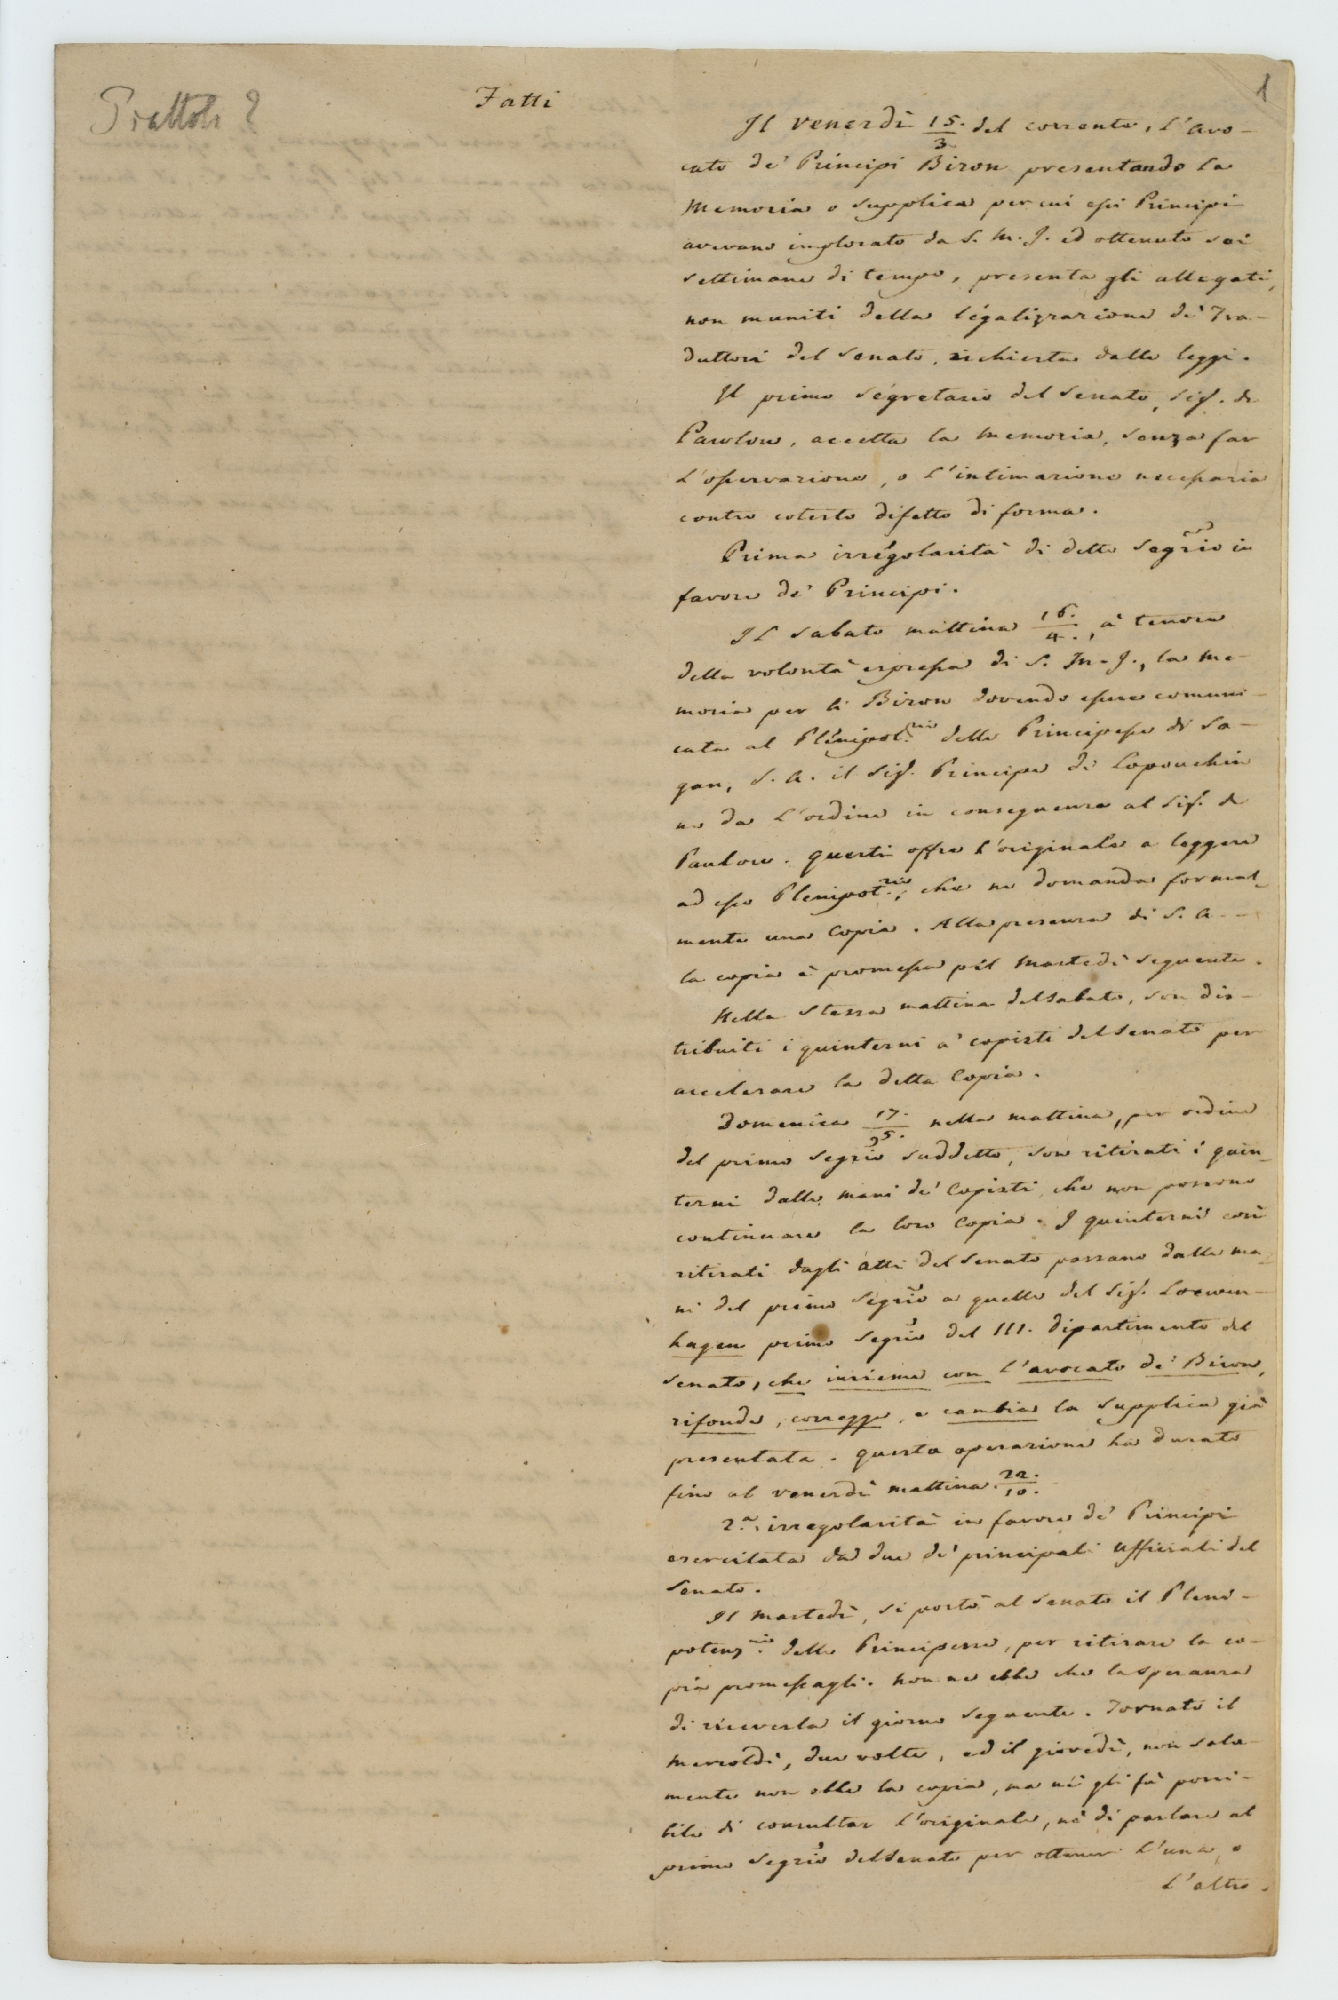 Fatti
1
Il venerdì 15./3 del corrente, l'avo-
cato de' Principi Biron presentando la
memoria o supplica per cui essi Principi
avevano implorato da S. M. J. ed ottenuto sei
settimane di tempo, presenta gli allegati,
non muniti della legalizzazione de' Tra-
duttori del Senato, richiesta dalle leggi.
Il primo segretario del Senato, Sig. de
Pawlow, accetta la memoria, senza far
l'osservazione, o l'intimazione necessaria
contro cotesto difetto di forma.
Prima irregolarità di detto Segrio in
favore de' Principi.
Il sabato mattina 16./4., a tenore
della volontà espressa di S. M. J., la me-
moria per li Biron dovendo essere comuni-
cata al Plenipot.rio della Principessa di Sa-
gan, S. A. il Sig. Principe de Lapouchin
ne da l'ordine in conseguenza al Sig. de
Paulow. Questi offre l'originale a leggere
ad esso Plenipot.rio, che ne domanda formal-
mente una Copia. Alla presenza di S. A.
la copia è promessa pel Martedì seguente.
Nella stessa mattina del sabato, son dis-
tribuiti i quinterni a' copisti del Senato per
accelerare la detta Copia.
Domenica 17./5. nella mattina, per ordine
del primo Segrio suddetto, son ritirati i quin-
terni dalle mani de' Copisti, che non possono
continuare la loro Copia. I quinterni così
ritirati dagli atti del Senato passano dalle ma-
ni del primo Segrio a quelle del Sig. Loewen-
hagen primo Segrio del III. dipartimento del
Senato, che insieme con l'avocato de' Biron,
rifonde, corregge, e cambia la supplica già
presentata. Questa operazione ha durato
fino al venerdì mattina 22./10.
2.a irregolarità in favore de' Principi
esercitata da due de' principali Uffiziali del
Senato.
Il martedì, si portò al Senato il Pleni-
potenz.rio della Principessa, per ritirare la co-
pia promessagli. Non ne ebbe che la speranza
di riceverla il giorno seguente. Tornato il
Mercoldì, due volte, ed il giovedì, non sola-
mente non ebbe la copia, ma nè gli fù possi-
bile di consultar l'originale, nè di parlare al
primo Segrio del Senato per ottener l'una, o
l'altro.